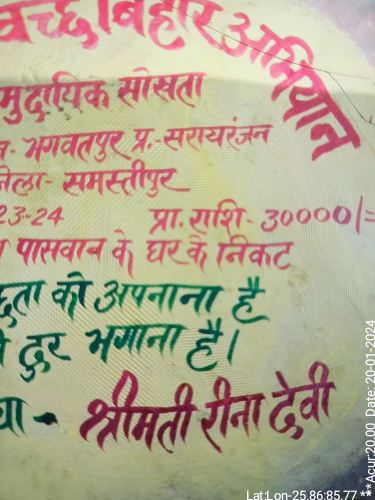 वच्छ बिहार अभियान
मुदायिक सोख्ता
भगवतपुर प्र.-सरायरंजन
जिला- समस्तीपुर
23-24 प्रा. राशि- 30000/=
पासवान के घर के निकट
को अपनाना है
दुर भगाना है।
श्रीमती रीना देवी
Lat:Lon-25.86:85.77 ** Acur:20.00 Date: 20-01-2024